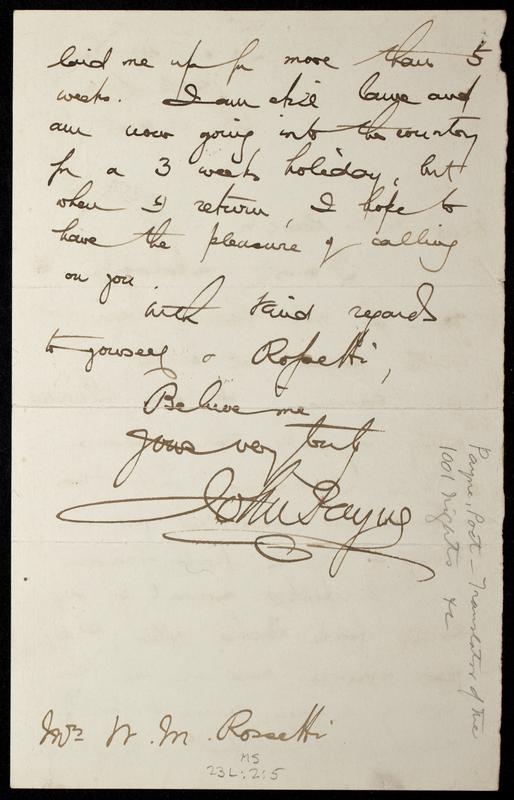 laid me up for more than 5
weeks. I am still lame and
am now going into the country
for a 3 weeks holiday, but
when I return, I hope to
have the pleasure of calling
on you
with kind regards
to yourself & Rossetti,
Believe me
yours very truly
John Payne
Mrs W. M. Rossetti
MS
23L:2:5
Payne, Poet – Translator of the
1001 Nights &c